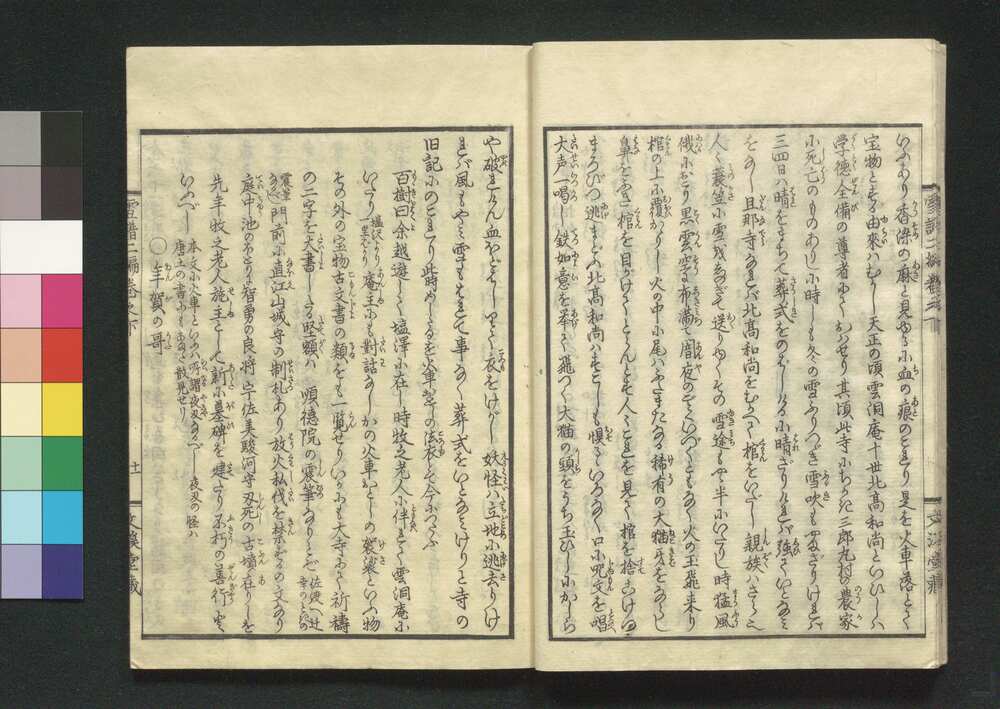 いふあり香染の麻と見ゆるに血の痕のこれり是を火車落とて
宝物とする由來ハむかし天正の頃雲洞庵十世北高和尚といひしハ
学徳全備の尊者にておハせり其頃此寺にちかき三郎丸村の農家
に死亡のものありしに時しも冬の雪ふりつゞき雪吹もやまざりけれバ
三四日ハ晴をまちて葬式をのばしけるに晴ざりけれバ強ていとなみ
をなし旦那寺なれバ北高和尚をむかへて棺をいだし親族ハさら也
人〻蓑笠に雪を凌ぎて送りゆく其雪途もやゝ半にいたりし時猛風
俄におこり黒雲空に布満闇夜のごとくいづくともなく火の玉飛来り
棺の上に覆かゝりし火の中に尾ハふたまたなる稀有の大猫牙をならし
鼻をふき棺を目がけてとらんとす人〻これを見て棺を捨こけつ
まろびつ逃まどふ北高和尚ハすこしも惧るゝいろなく口に呪文を唱
大声一喝し鉄如意を挙て飛つく大猫の頭をうち玉ひしにかしら
や破けん血ほどばしりて衣をけがし妖怪ハ立地に逃去りけ
れバ風もやみ雪もはれて事なく葬式をいとなみけりと寺の
旧記にのこれり此時めしたるを火車落の法衣とて今につたふ
百樹曰余越遊して塩澤に在し時牧之老人に伴れて雲洞庵に
いたり塩沢より一里ばかり庵主にも對話なしかの火車おとしの袈裟といふ物
その外の宝物古文書の類をも一覧せりいかにも大寺にて祈禱
の二字を大書しさる竪額ハ順徳院の震筆なりとぞ佐渡へ
門前に直江山城守の制札あり放火私伐を禁ずるの文なり
庭中池のほとりに智勇の良将宇佐美駿河守刃死の古墳在りしを
先年牧之老人施主として新に墓碑を建たり不朽の善行と
いふべし本文に火車といふハ所謂夜叉なるべし夜叉の怪ハ
唐土の書にもあまた散見せり
○年賀の哥
雪譜二編巻之下
十一
文溪堂藏